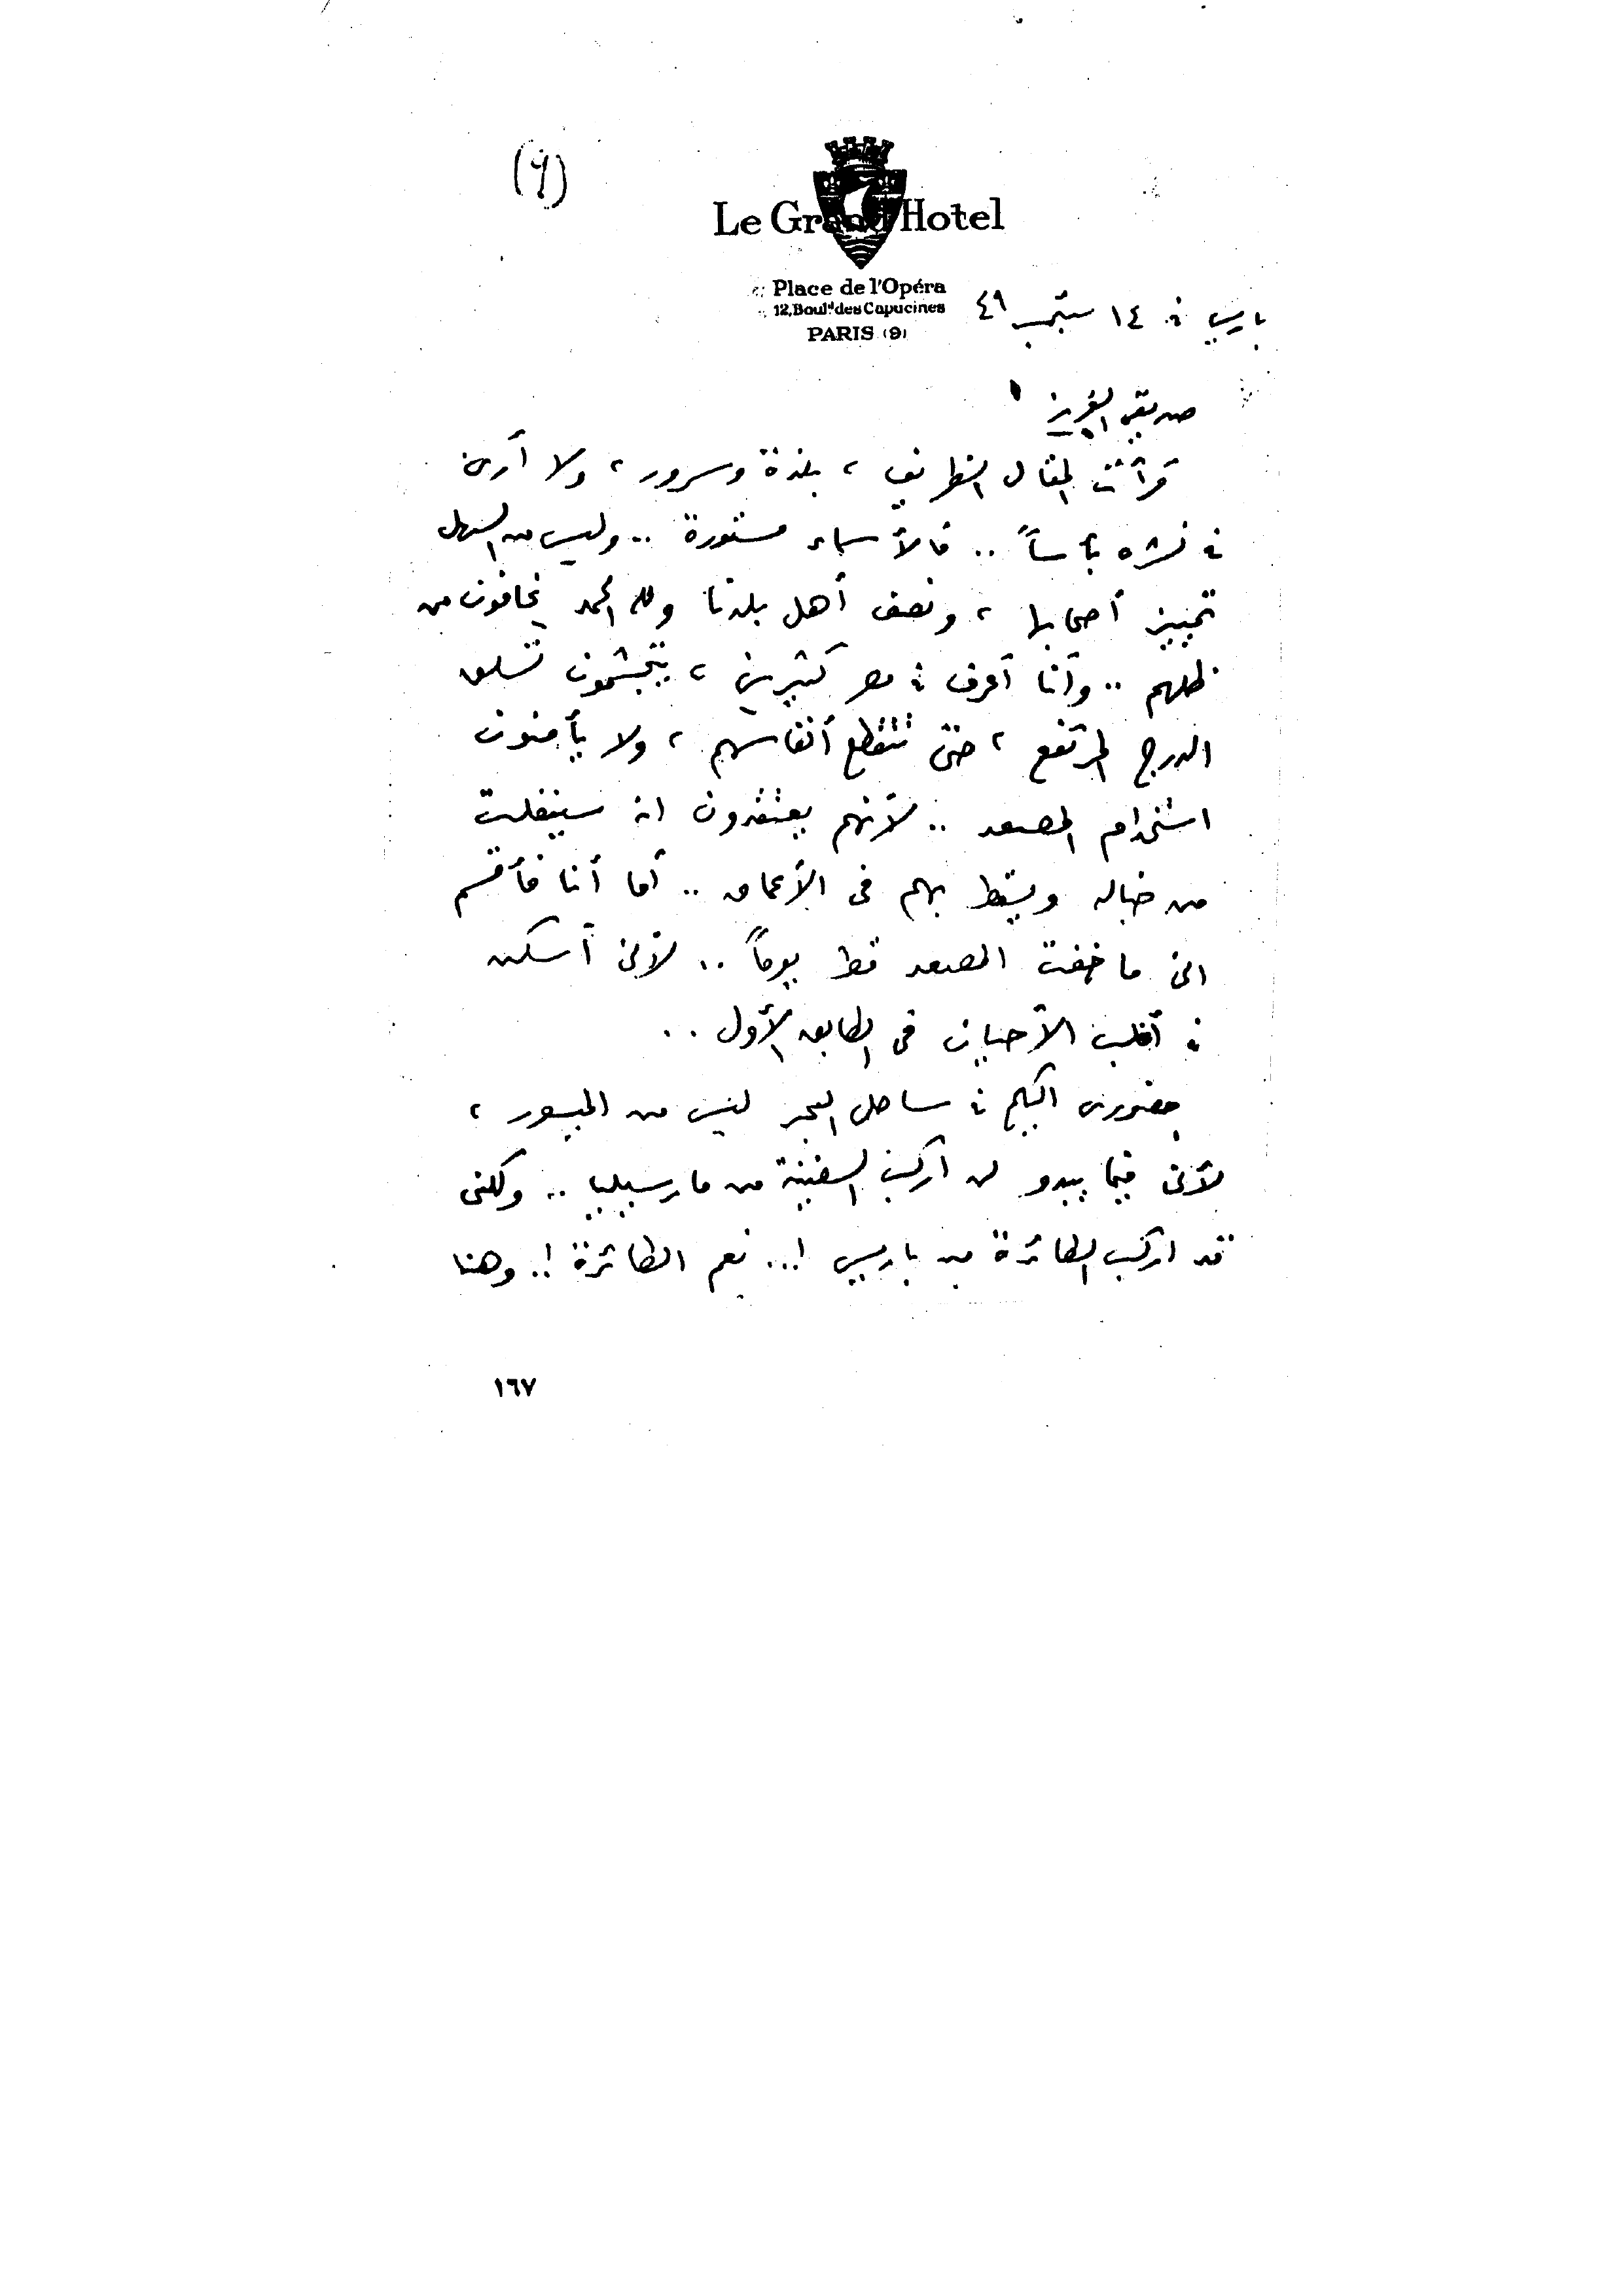 (٩)
Le Grand Hotel
Place de l'Opéra
12, Boul.d des Capucines
PARIS (9)
باريس في ١٤ سبتمبر ٤٩
صديقي العزيز
قرأت المقال الظريف ، بلذة وسرور ، ولا أرى
في نشره بأساً .. فالأسماء مستورة .. وليس من السهل
تمييز أصحابها ، ونصف أهل بلدنا ولله الحمد يخافون من
ظلهم .. وأنا أعرف في مصر كثيرين ، يتجشمون تسلق
الدرج المرتفع ، حتى تتقطع أنفاسهم ، ولا يأمنون
استخدام المصعد .. لأنهم يعتقدون انه سينفلت
من حباله ويسقط بهم فى الأعماق .. أما أنا فأقسم
انى ما خفت المصعد قط يوماً .. لأنى أسكن
في أغلب الأحيان فى الطابق الأول ..
حضورى اليكم في ساحل البحر ليس من الميسور ،
لأنى فيما يبدو لن اركب السفينة من مارسيليا .. ولكنى
قد اركب الطائرة من باريس !... نعم الطائرة !.. وهنا
١٦٧